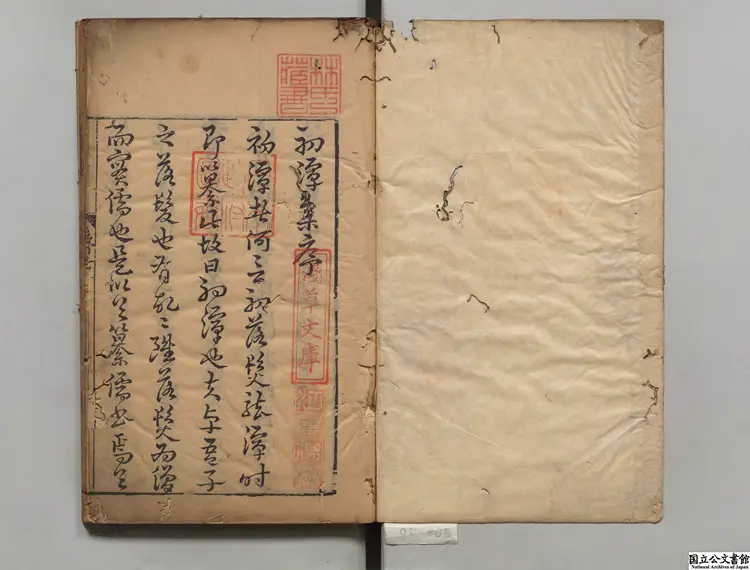 林氏
藏書
初潭集序
初潭者何言初落髮龍潭時
即纂此故曰初潭也夫卓吾子
之落髮也有故〻雖落髮為僧
而實儒也是以首纂儒書焉首
淺草文庫
国立公文書館
National Archives of Japan